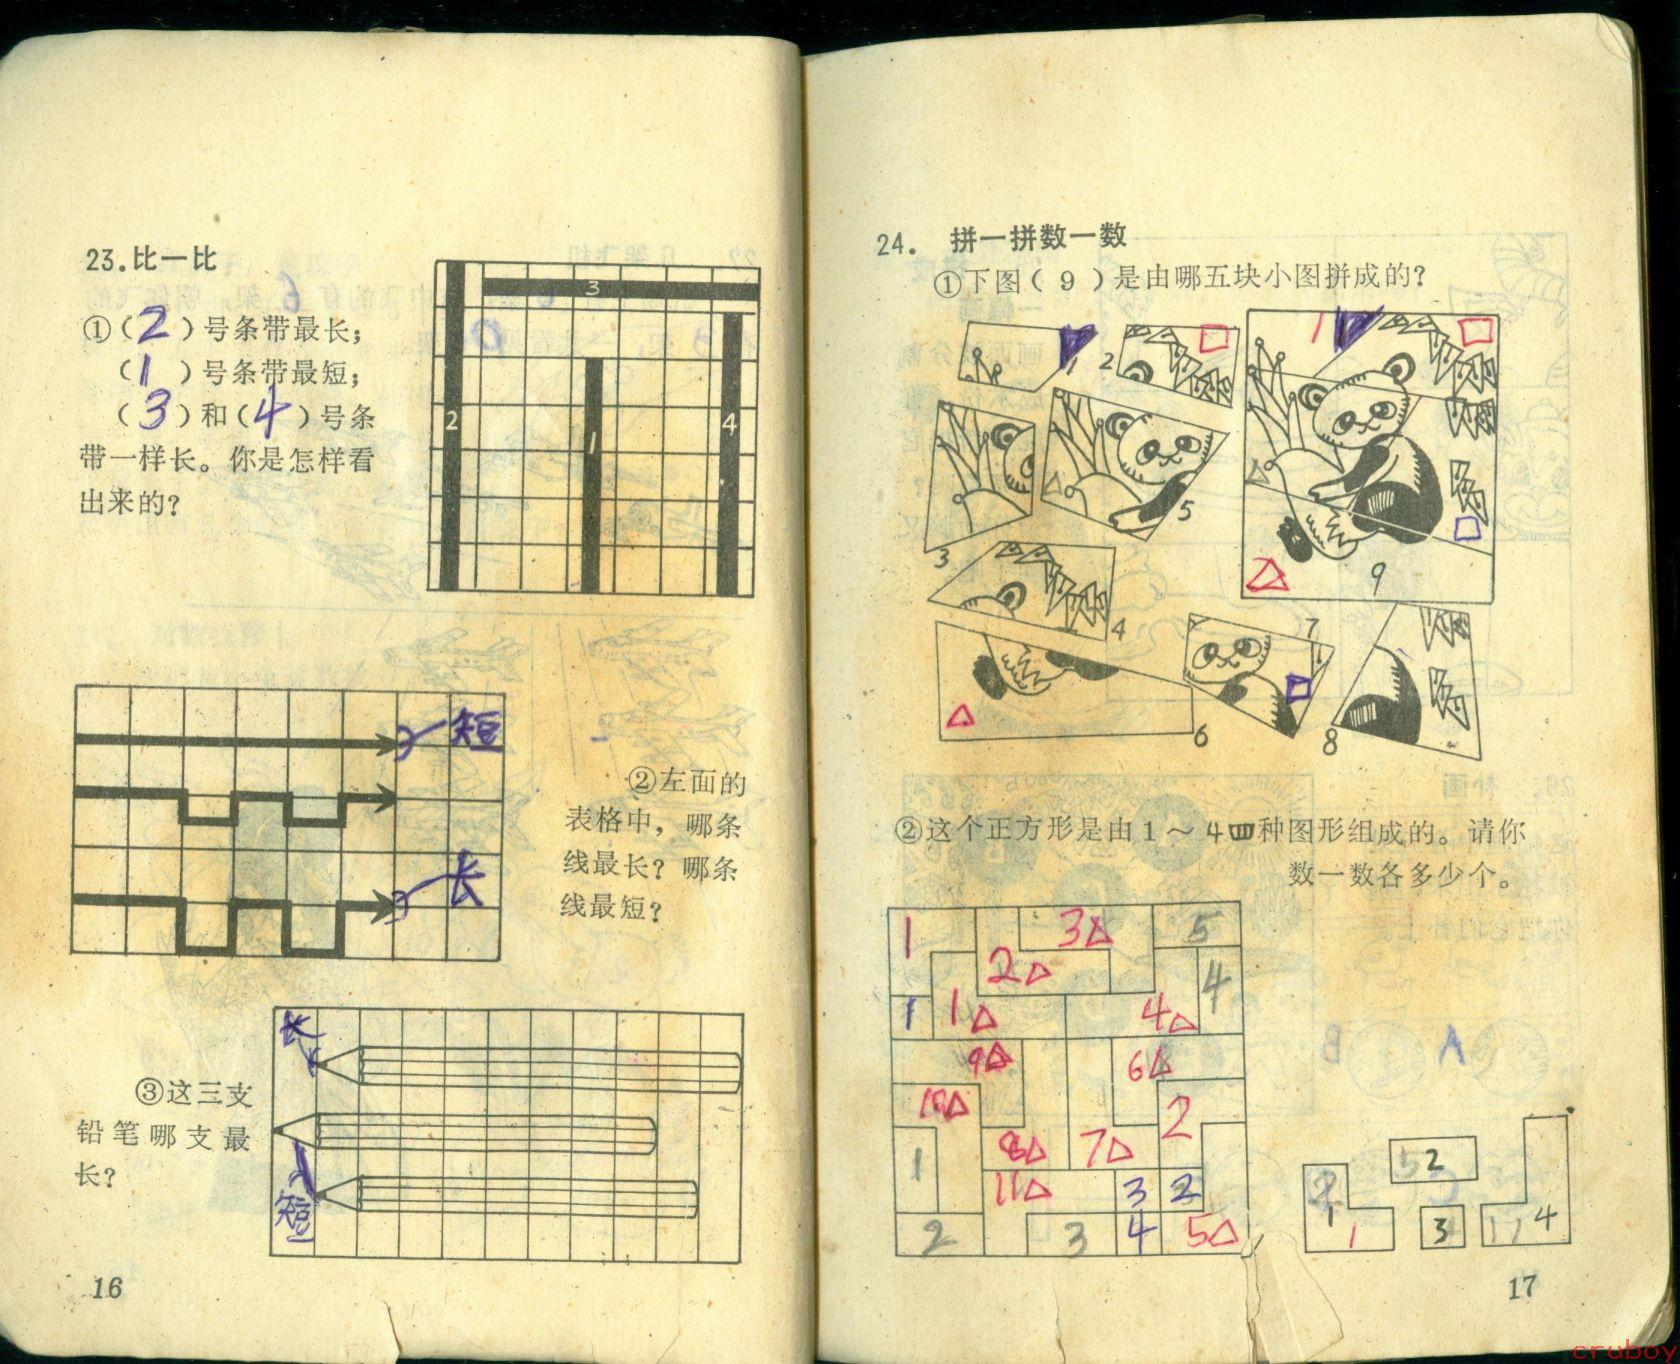 23.比一比
①(2)号条带最长;
(1)号条带最短;
(3)和(4)号条
带一样长。你是怎样看
出来的?
3
2
1
4
短
长
②左面的
表格中,哪条
线最长?哪条
线最短?
长
③这三支
铅笔哪支最
长?
短
16
24. 拼一拼数一数
①下图(9)是由哪五块小图拼成的?
1
2
3
4
5
6
7
8
9
②这个正方形是由1～4四种图形组成的。请你
数一数各多少个。
1 3△ 5
2△ 4
1 1△ 4△
9△ 6△
10△ 2
1 8△ 7△
11△ 3 2
2 3 4 5△
2 1 1
5 2
3
11 4
17
cruboy